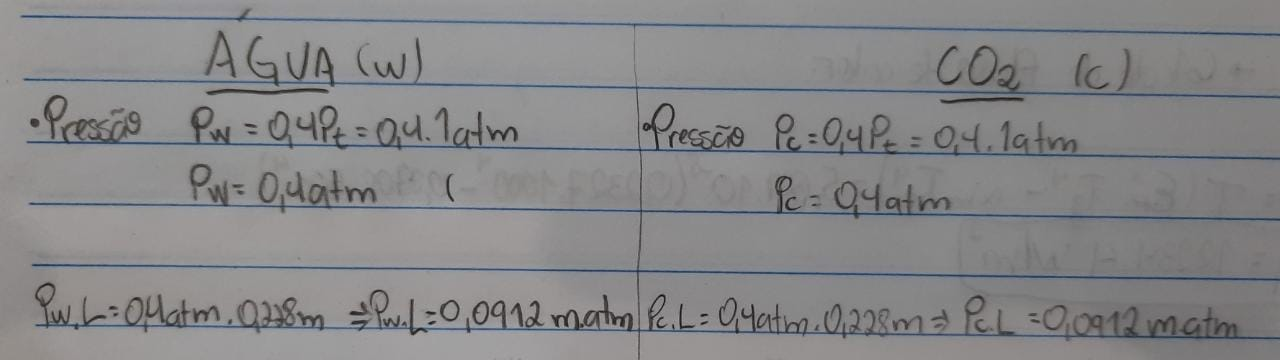 ÁGUA (W)
•Pressão Pw = 0,4Pt = 0,4 . 1atm
Pw = 0,4atm (
Pw.L = 0,4atm . 0,228m ⇒ Pw.L = 0,0912 m.atm
CO2 (C)
•Pressão Pc = 0,4Pt = 0,4 . 1atm
Pc = 0,4atm
Pc.L = 0,4atm . 0,228m ⇒ Pc.L = 0,0912 m.atm